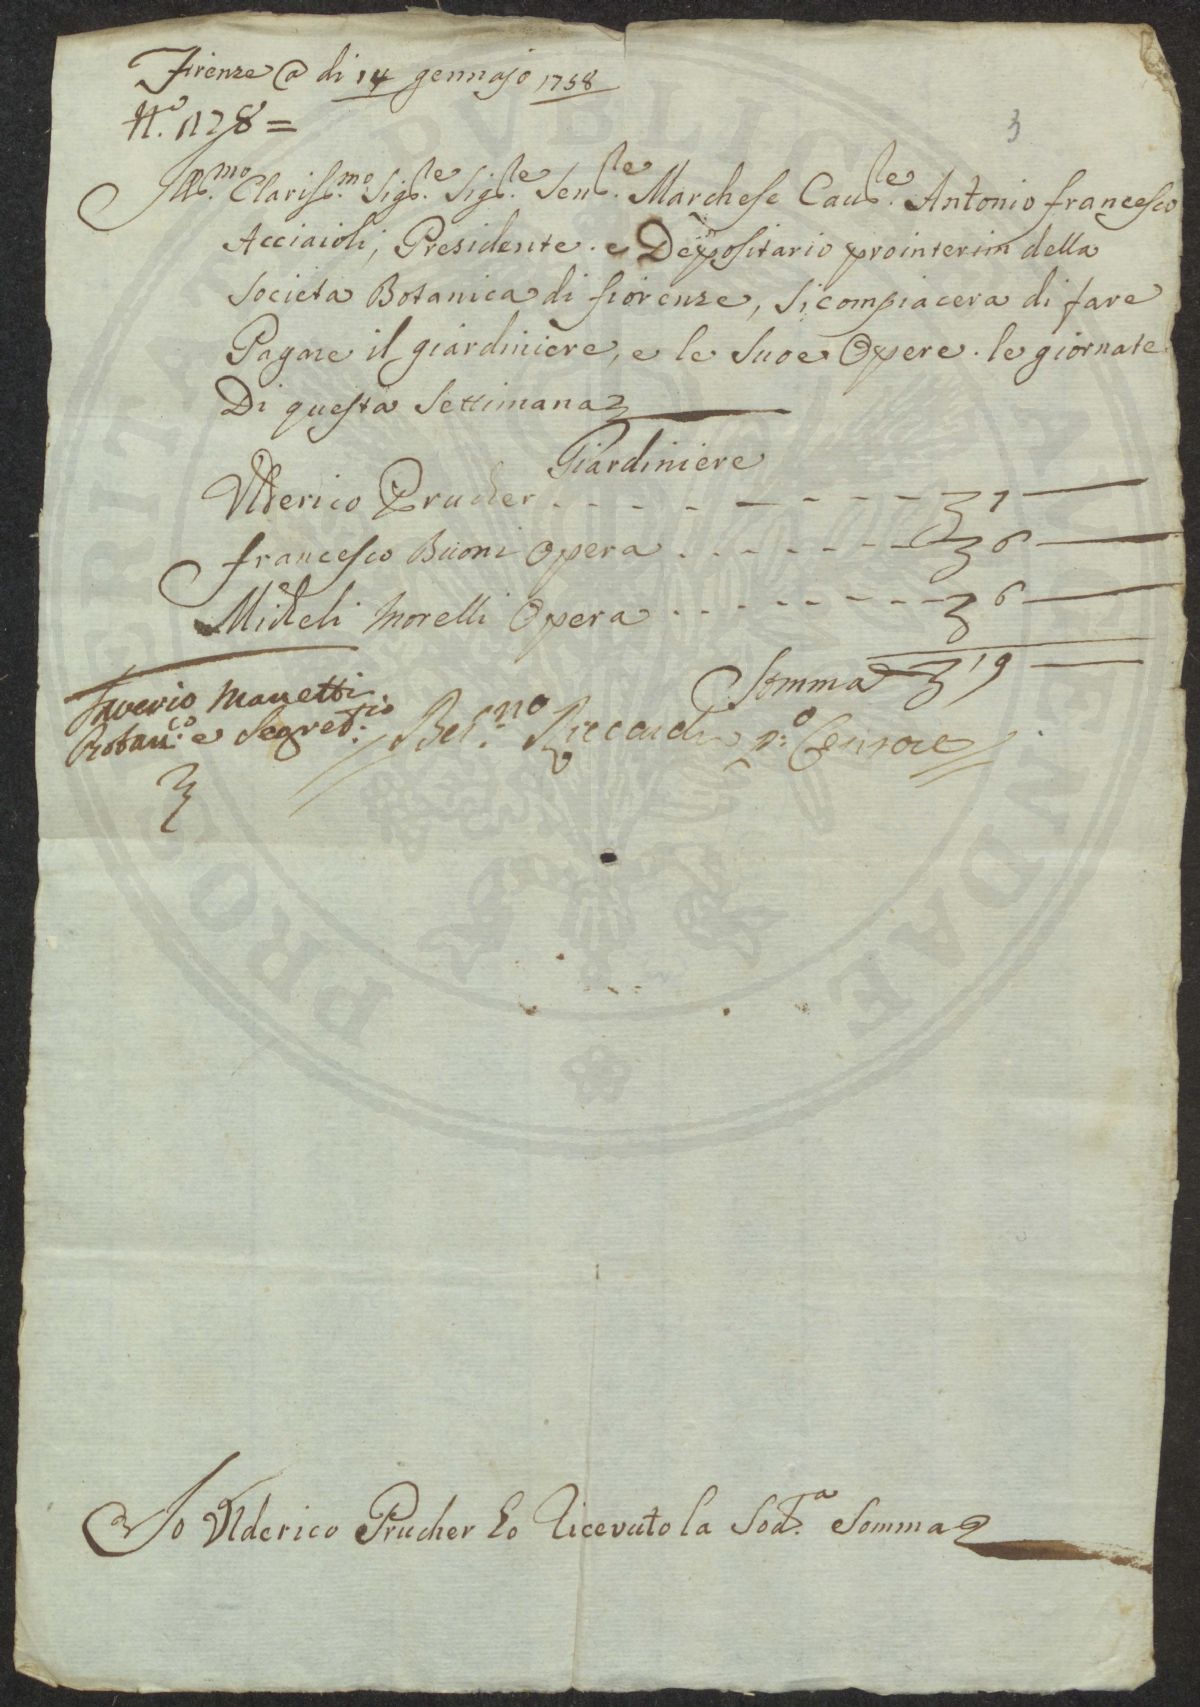 Firenze @ di 14 gennajo 1758
N.º 1178 =
3
Ill.mo Clariss.mo Sig.re Sig.re Sen.re Marchese Cau.re Antonio francesco
Acciaioli, Presidente. e Depositario prointerim della
Societa Botanica di fiorenze, Si compiacera di fare
Pagare il giardiniere, e le Suoe Opere. le giornate
Di questa Settimana
Giardiniere
Ulderico Prucher 7
francesco Buoni Opera 6
Micheli Morelli Opera 6
Somma 19
Saverio Manetti
Botan.co e Segret.rio
Ber.no Riccardi p.º Censore
Io Ulderico Prucher ho Ricevuto la Sod.a Somma